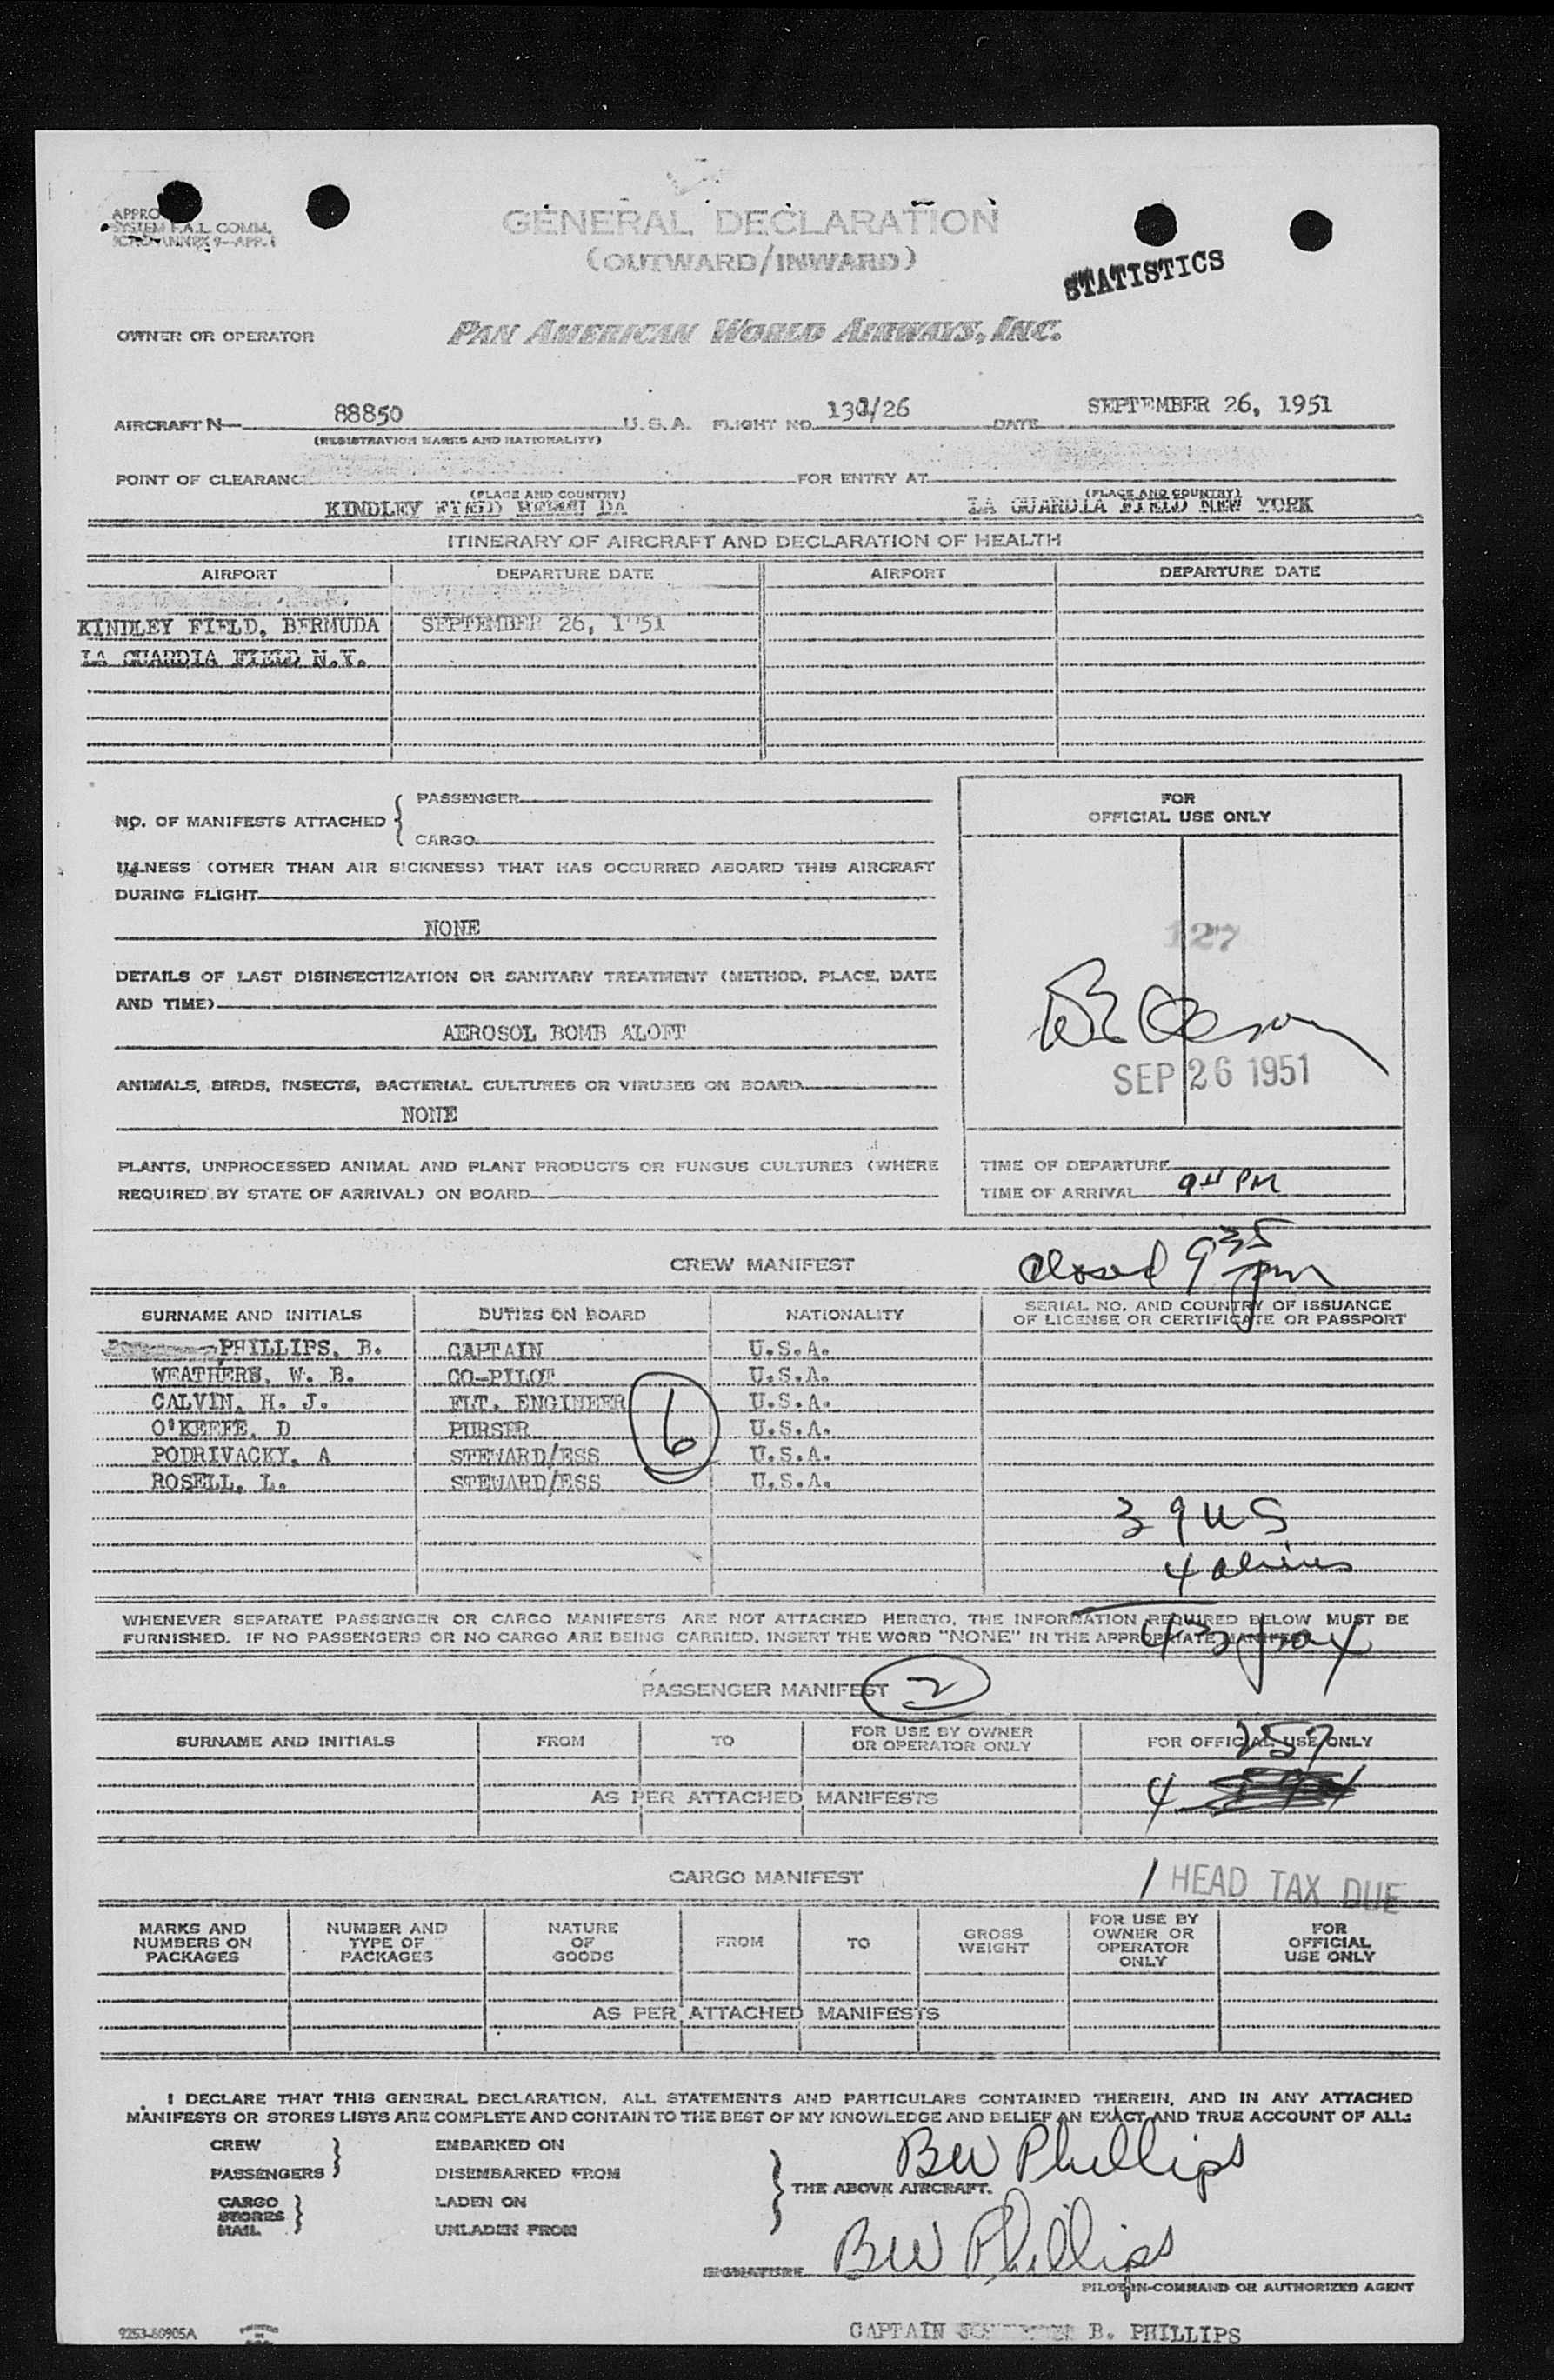 GENERAL DECLARATION
(OUTWARD/INWARD)
SYSTEM F.A.L. COMM.
STATISTICS
OWNER OR OPERATOR PAN AMERICAN WORLD AIRWAYS, INC.
AIRCRAFT N— 88850 U.S.A. FLIGHT NO. /26 DATE SEPTEMBER 26, 1951
(REGISTRATION MARKS AND NATIONALITY)
POINT OF CLEARANC FOR ENTRY AT
(PLACE AND COUNTRY) (PLACE AND COUNTRY)
KINDLEY FIELD LA GUARDIA FIELD NEW YORK
ITINERARY OF AIRCRAFT AND DECLARATION OF HEALTH
AIRPORT DEPARTURE DATE AIRPORT DEPARTURE DATE
KINDLEY FIELD, BERMUDA SEPTEMBER 26, 1951
LA GUARDIA FIELD N.Y.
NO. OF MANIFESTS ATTACHED { PASSENGER
CARGO
ILLNESS (OTHER THAN AIR SICKNESS) THAT HAS OCCURRED ABOARD THIS AIRCRAFT
DURING FLIGHT
NONE
DETAILS OF LAST DISINSECTIZATION OR SANITARY TREATMENT (METHOD, PLACE, DATE
AND TIME)
AEROSOL BOMB ALOFT
ANIMALS, BIRDS, INSECTS, BACTERIAL CULTURES OR VIRUSES ON BOARD
NONE
PLANTS, UNPROCESSED ANIMAL AND PLANT PRODUCTS OR FUNGUS CULTURES (WHERE
REQUIRED BY STATE OF ARRIVAL) ON BOARD
FOR
OFFICIAL USE ONLY
127
SEP 26 1951
TIME OF DEPARTURE
TIME OF ARRIVAL PM
closed 9 35 pm
CREW MANIFEST
SURNAME AND INITIALS DUTIES ON BOARD NATIONALITY SERIAL NO. AND COUNTRY OF ISSUANCE
OF LICENSE OR CERTIFICATE OR PASSPORT
PHILLIPS, B. CAPTAIN U.S.A.
WEATHERS, W. B. CO-PILOT U.S.A.
CALVIN, H. J. FLT. ENGINEER U.S.A.
O'KEEFE, D PURSER U.S.A.
PODRIVACKY, A STEWARD/ESS U.S.A.
ROSELL, L. STEWARD/ESS U.S.A.
6
39 US
4 aliens
43
WHENEVER SEPARATE PASSENGER OR CARGO MANIFESTS ARE NOT ATTACHED HERETO, THE INFORMATION REQUIRED BELOW MUST BE
FURNISHED. IF NO PASSENGERS OR NO CARGO ARE BEING CARRIED, INSERT THE WORD "NONE" IN THE APPROPRIATE
PASSENGER MANIFEST 2
SURNAME AND INITIALS FROM TO FOR USE BY OWNER
OR OPERATOR ONLY FOR OFFICIAL USE ONLY
257
4
AS PER ATTACHED MANIFESTS
CARGO MANIFEST
1 HEAD TAX DUE
MARKS AND
NUMBERS ON
PACKAGES
NUMBER AND
TYPE OF
PACKAGES
NATURE
OF
GOODS
FROM
TO
GROSS
WEIGHT
FOR USE BY
OWNER OR
OPERATOR
ONLY
FOR
OFFICIAL
USE ONLY
AS PER ATTACHED MANIFESTS
I DECLARE THAT THIS GENERAL DECLARATION, ALL STATEMENTS AND PARTICULARS CONTAINED THEREIN, AND IN ANY ATTACHED
MANIFESTS OR STORES LISTS ARE COMPLETE AND CONTAIN TO THE BEST OF MY KNOWLEDGE AND BELIEF AN EXACT AND TRUE ACCOUNT OF ALL:
CREW
PASSENGERS }
EMBARKED ON
DISEMBARKED FROM
CARGO
STORES
MAIL }
LADEN ON
UNLADEN FROM
} THE ABOVE AIRCRAFT.
BW Phillips
SIGNATURE BW Phillips
PILOT-IN-COMMAND OR AUTHORIZED AGENT
CAPTAIN B. PHILLIPS
9253-60905A